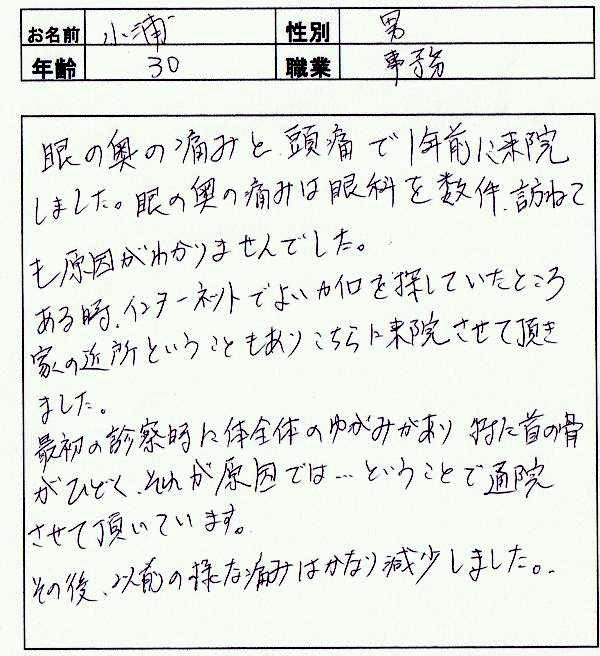 お名前 小浦 性別 男
年齢 30 職業 事務
眼の奥の痛みと頭痛で1年前に来院
しました。眼の奥の痛みは眼科を数件、訪ねて
も原因がわかりませんでした。
ある時、インターネットでよいカイロを探していたところ
家の近所ということもありこちらに来院させて頂き
ました。
最初の診察時に体全体のゆがみがあり 特に首の骨
がひどく、それが原因では…ということで通院
させて頂いています。
その後、以前の様な痛みはかなり減少しました。